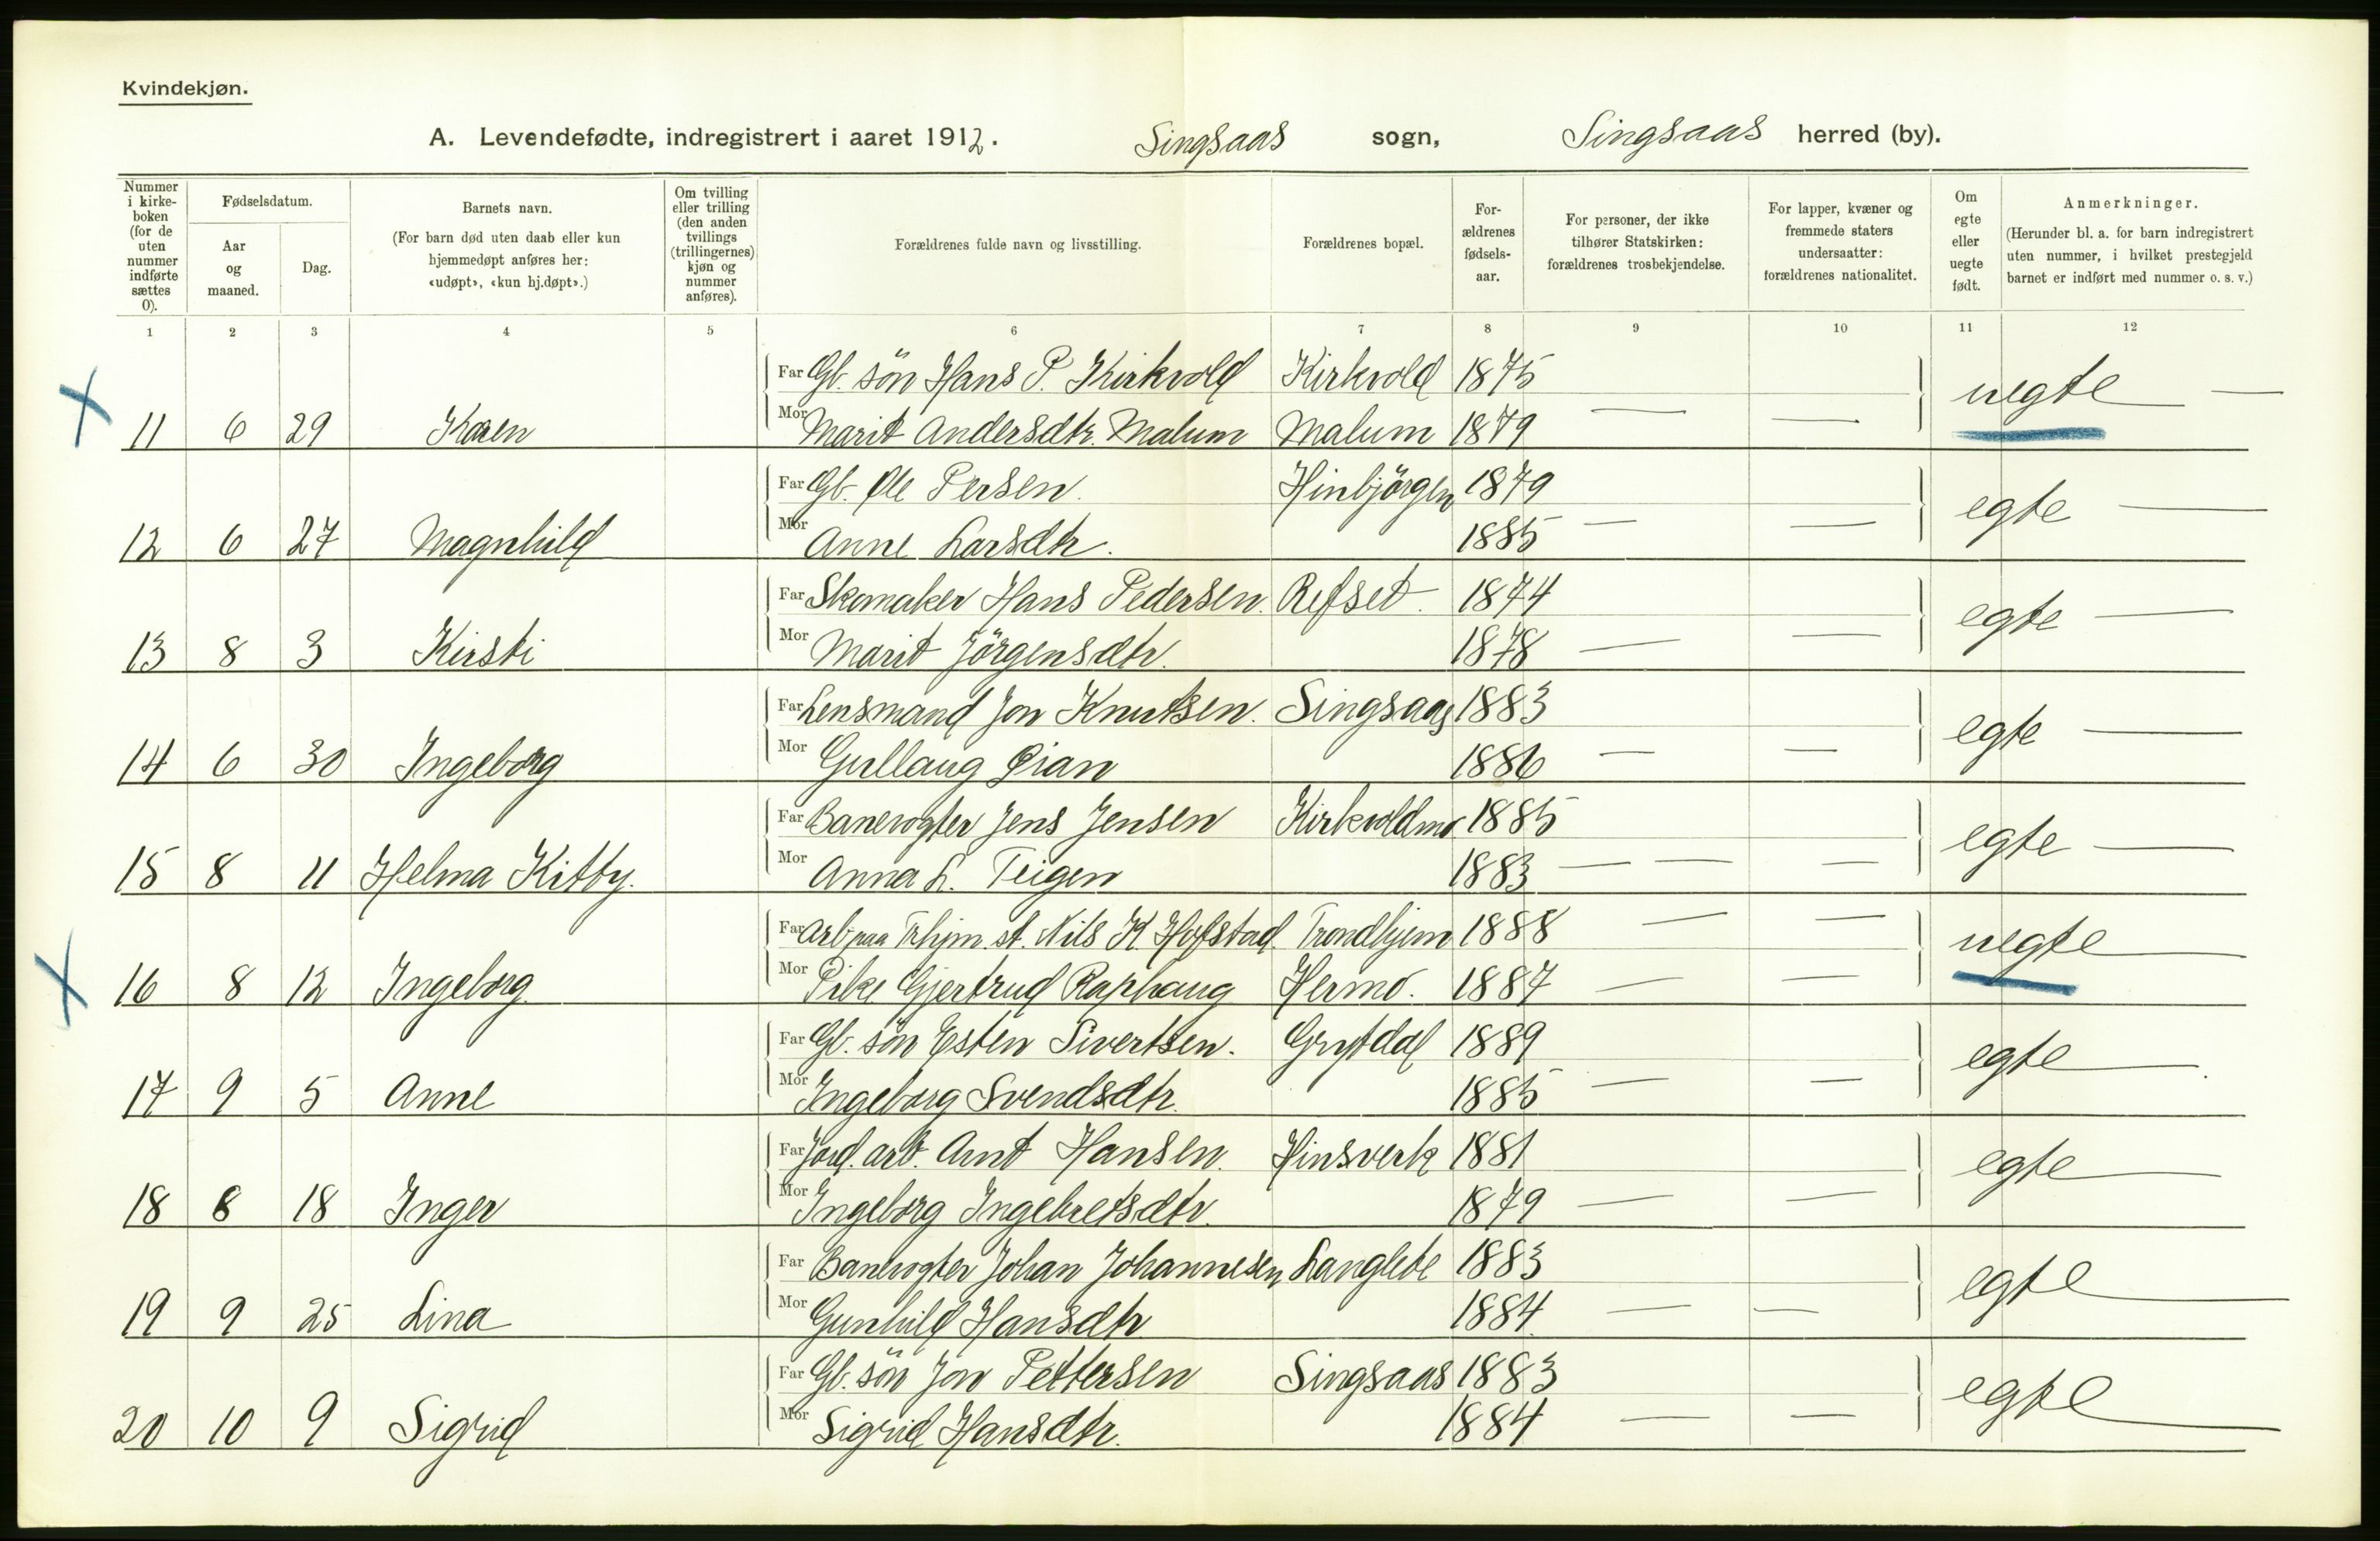 Kvindekjøn.
A. Levendefødte, indregistrert i aaret 1912. Singsaas sogn, Singsaas herred (by).
Nummer i kirke-boken (for de uten nummer indførte sættes 0).
Fødselsdatum.
Aar og maaned.
Dag.
Barnets navn.
(For barn død uten daab eller kun hjemmedøpt anføres her: «udøpt», «kun hj.døpt».)
Om tvilling eller trilling (den anden tvillings (trillingernes) kjøn og nummer anføres).
Forældrenes fulde navn og livsstilling.
Forældrenes bopæl.
For-ældrenes fødsels-aar.
For personer, der ikke tilhører Statskirken: forældrenes trosbekjendelse.
For lapper, kvæner og fremmede staters undersaatter: forældrenes nationalitet.
Om egte eller uegte født.
Anmerkninger.
(Herunder bl. a. for barn indregistrert uten nummer, i hvilket prestegjeld barnet er indført med nummer o. s. v.)
1 2 3 4 5 6 7 8 9 10 11 12
Far Gb. sön Hans P. Kirkvold Kirkvold 1875 uegte —
11 6 29 Karen Mor Marit Andersdtr. Malum Malum 1879 — —
Far Gb. Ole Persen. Hinbjörgen 1879 egte —
12 6 27 Magnhild Mor Anne Larsdtr. 1885 — —
Far Skomaker Hans Pedersen. Refset. 1874 egte —
13 8 3 Kirsti Mor Marit Jörgensdtr. 1878 — —
Far Lensmand Jon Knutsen. Singsaas 1883 egte —
14 6 30 Ingeborg Mor Gullaug Øian 1886 — —
Far Banevogter Jens Jensen Kirkvoldmo 1885 egte —
15 8 11 Helma Kitty. Mor Anna L. Teigen 1883 — — —
Far Arb. paa Trhjm. st. Nils K. Hofstad. Trondhjem 1888 — — uegte —
16 8 12 Ingeborg Mor Pike Gjertrud Raphaug Hermo. 1887 — —
Far Gb. sön Esten Sivertsen. Grytdal 1889 egte —
17 9 5 Anne Mor Ingeborg Svendsdtr. 1885 — —
Far Jord. arb. Arnt Hansen. Hinsverk 1881 egte —
18 8 18 Inger Mor Ingeborg Ingebretsdtr. 1879 — —
Far Banevogter Johan Johannesen Langlete 1883 egte —
19 9 25 Lina Mor Gunhild Hansdtr 1884. — —
Far Gb. sön Jon Pettersen Singsaas 1883 egte —
20 10 9 Sigrid Mor Sigrid Hansdtr. 1884 — —